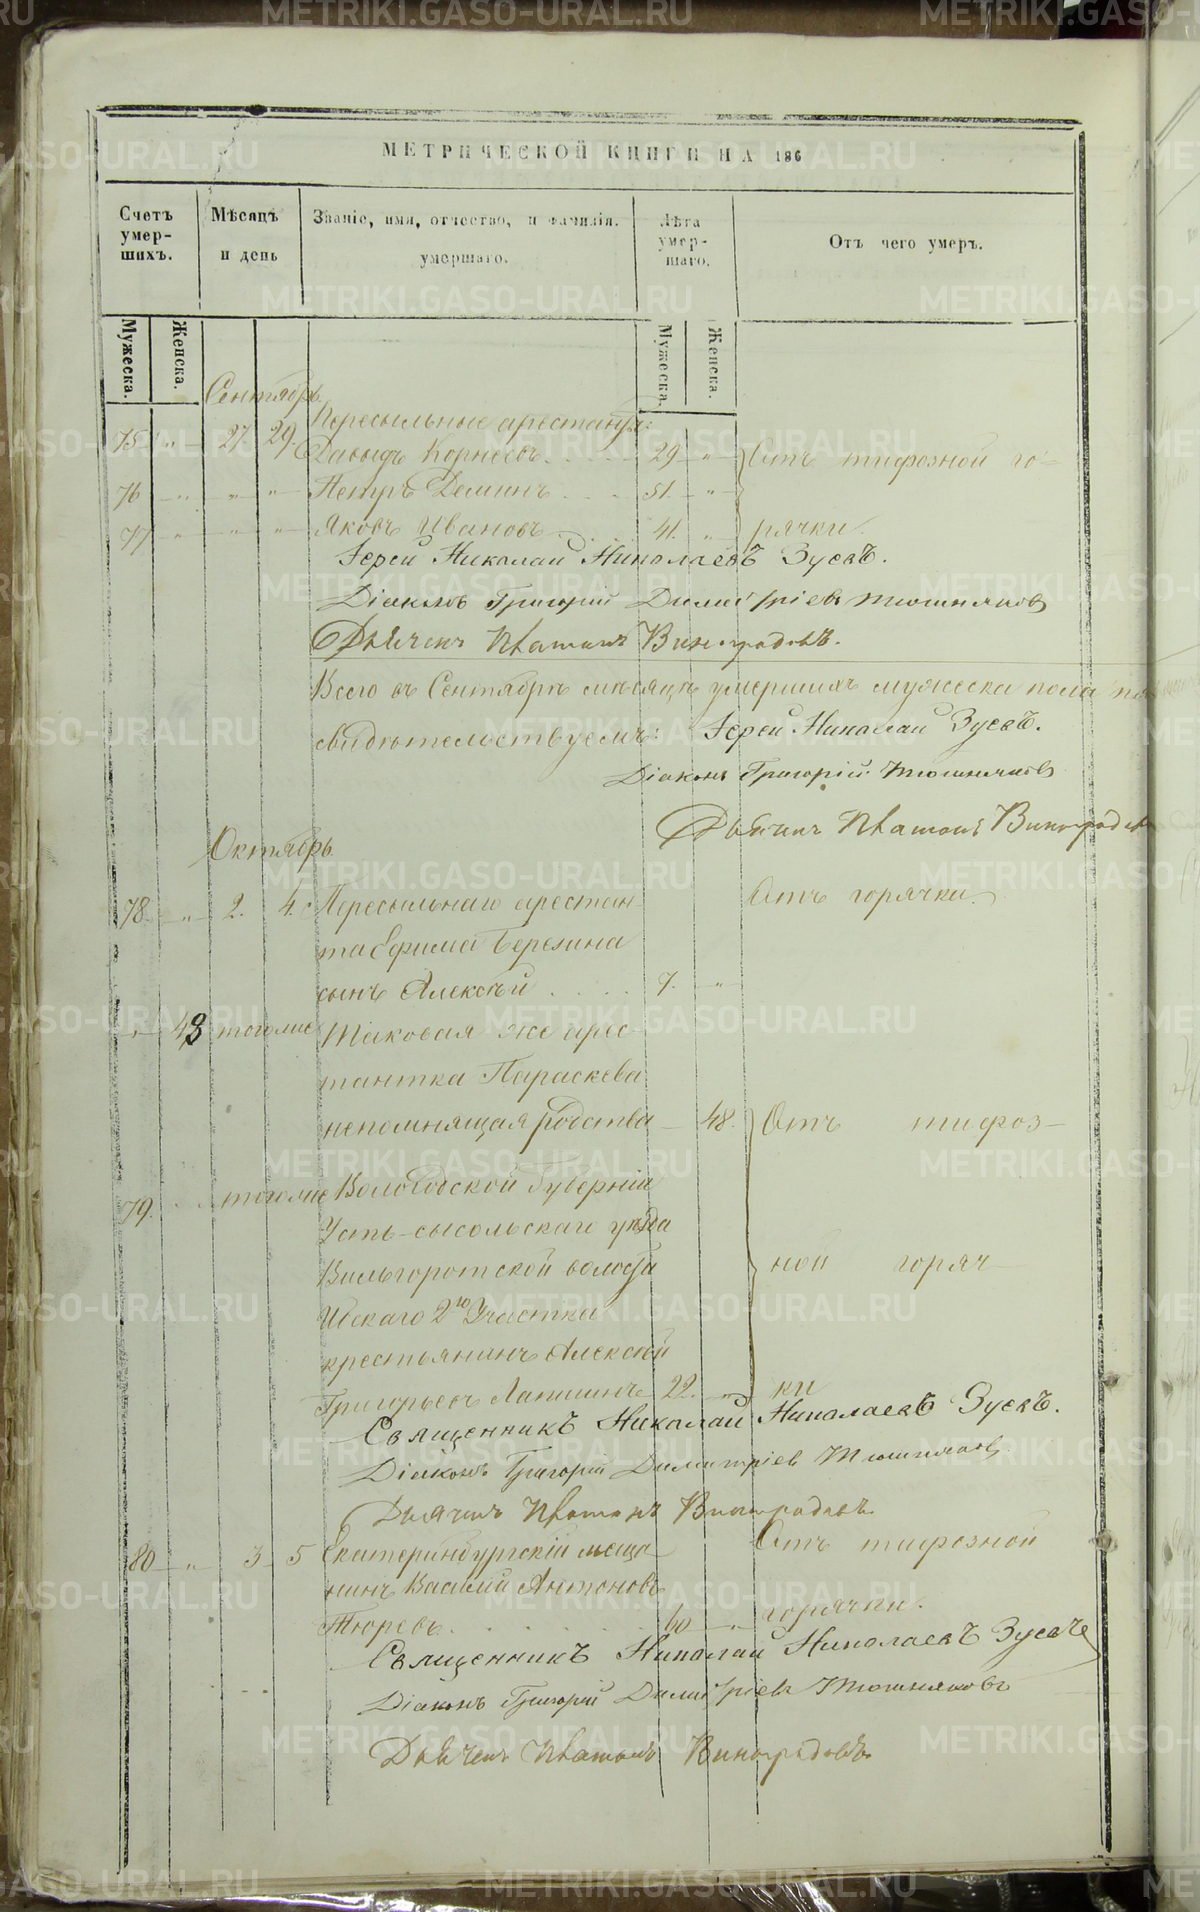 МЕТРИЧЕСКОЙ КНИГИ НА 186
Счетъ умер-шихъ. Мѣсяцъ и день Званіе, имя, отчество, и фамилія. умершаго. Лѣта умер-шаго. Отъ чего умеръ.
Мужеска. Женска. Мужеска. Женска.
Сентябрь.
Пересыльные арестанты:
75 " 27. 29. Давыдъ Корнеевъ. 29 " Отъ тифозной го-
76 " " " Петръ Деминъ 51. "
77 " " " Яковъ Ивановъ 41. " рячки.
Іерей Николай Николаевъ Зуевъ.
Діаконъ Григорій Димитріевъ Тюшняковъ
Дьячекъ Платонъ Виноградовъ.
Всего въ Сентябрѣ мѣсяцѣ умершихъ мужеска пола
свидѣтельствуемъ: Іерей Николай Зуевъ.
Діаконъ Григорій Тюшняковъ
Дьячекъ Платонъ Виноградовъ
Октябрь.
78 " 2. 4. Пересыльнаго арестан- Отъ горячки.
та Ефима Березина
сынъ Алексѣй 7. "
" 43 того же Таковая же арес-
тантка Параскева
непомнящая родства 48. Отъ тифоз-
79. того же Вологодской губерніи
Усть-сысольскаго уѣзда
Вильгоротской волости ной горяч-
2го Участка
крестьянинъ Алексѣй
Григорьевъ Лапшинъ 22. " ки
Священникъ Николай Николаевъ Зуевъ.
Діаконъ Григорій Димитріевъ Тюшняковъ
Дьячекъ Платонъ Виноградовъ.
80 " 3 5 Екатеринбургскій меща- Отъ тифозной
нинъ Василій Антоновъ
Тюревъ 60 " горячки.
Священникъ Николай Николаевъ Зуевъ
Діаконъ Григорій Димитріевъ Тюшняковъ
Дьячекъ Платонъ Виноградовъ
METRIKI.GASO-URAL.RU